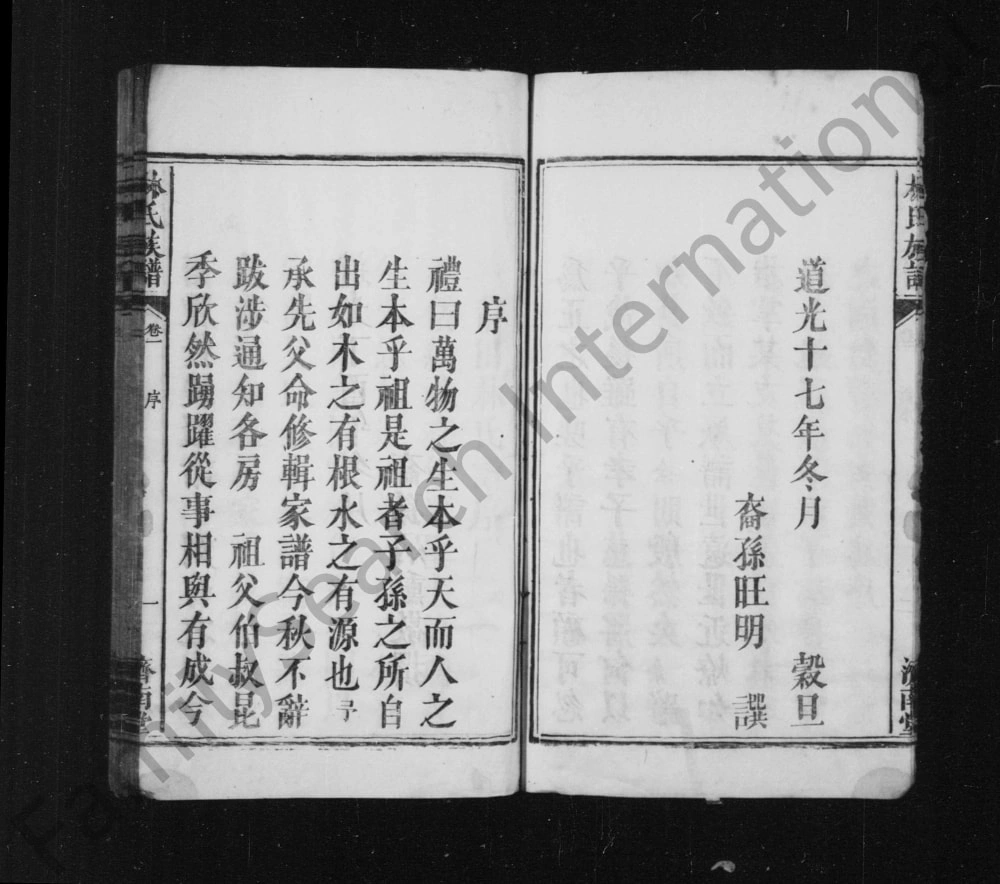 林氏族譜
道光十七年冬月 穀旦
裔孫旺明 謹譔
濟南堂
序
禮曰萬物之生本乎天而人之
生本乎祖是祖者子孫之所自
出如木之有根水之有源也予
承先父命修輯家譜今秋不辭
跋涉通知各房 祖父伯叔昆
季欣然踴躍從事相與有成今
林氏族譜
卷一
序
一
濟南堂
FamilySearch International